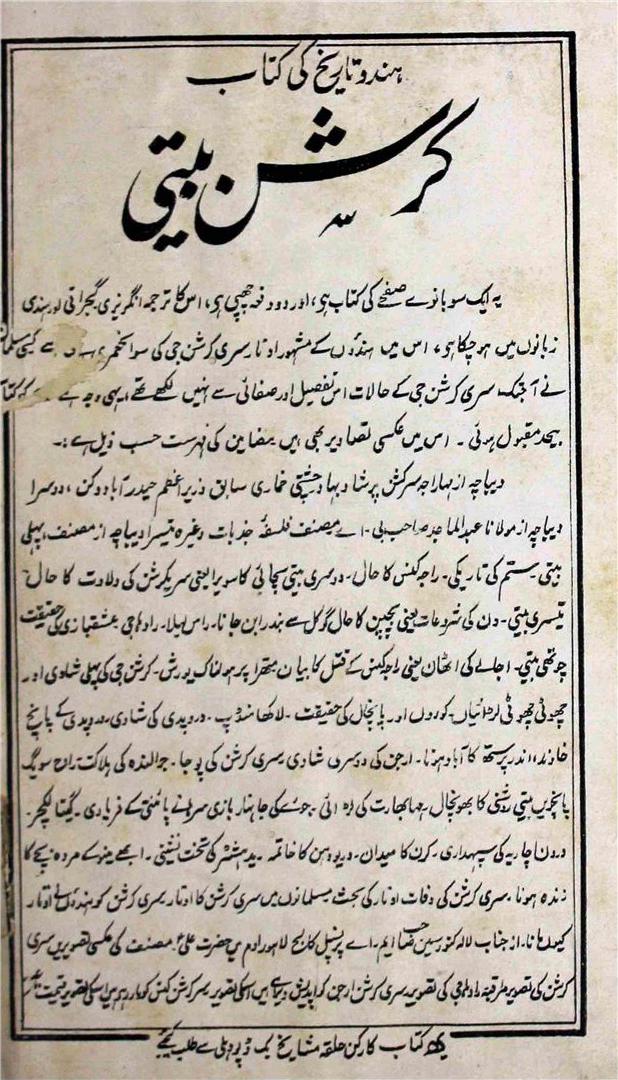 ہندو تاریخ کی کتاب
کرشن بیتی
یہ ایک سو بانوے صفحے کی کتاب ہی، اور دو دفعہ چھپی ہی، اس کا ترجمہ انگریزی گجراتی اور ہندی
زبانوں میں ہو چکا ہی، اس میں ہندوؤں کے مشہور اوتار سری کرشن جی کی سوانحعمری ہے کسی مسلمان
نے آجتک سری کرشن جی کے حالات اس تفصیل اور صفائی سے نہیں لکھے تھے، یہی وجہ ہے کہ
بیحد مقبول ہوئی۔ اس میں عکسی تصاویر بھی ہیں مضامین کی فہرست حسب ذیل ہے:۔
دیباچہ از مہاراجہ سرکشن پرشاد بہادر چشتی نظامی سابق وزیر اعظم حیدرآباد دکن، دوسرا
دیباچہ از مولانا عبدالماجد صاحب بی۔اے مصنف فلسفۂ جذبات وغیرہ تیسرا دیباچہ از مصنف، پہلی
بیتی۔ ستم کی تاریکی۔ راجہ کنس کا حال۔ دوسری بیتی سچائی کا سویرا یعنی سریکرشن کی ولادت کا حال۔
تیسری بیتی۔ دن کی شروعات یعنی بچپن کا حال گوکل سے بندرابن جانا۔ راس لیلا۔ رادھا جی عشقبازی کی حقیقت
چوتھی بیتی۔ اجالے کی اٹھان یعنی راجہ کنس کے قتل کا بیان متھرا پر ہولناک یورش۔ کرشن جی کی پہلی شادی اور
چھوٹی چھوٹی لڑائیاں۔ کوروں اور پانچال کی حقیقت۔ لاکھا منڈپ۔ دروپدی کی شادی۔ دروپدی کے پانچ
خاوند، اندر پرستھ کا آباد ہونا۔ ارجن کی دوسری شادی سری کرشن کی پوجا۔ جراسندہ کی ہلاکت راج سویگ
پانچویں بیتی روشنی کا بھونچال۔ مہابھارت کی لڑائی۔ جوئے کی جاہنار بازی سرہانے پائنتی کے فریادی۔ گیتا لکچر۔
درون اچاریہ کی سپہداری۔ کرن کا میدان۔ دریودہن کا خاتمہ۔ یدہشٹر کی تخت نشینی۔ ابھے منو کے مردہ بچے کا
زندہ ہونا۔ سری کرشن کی وفات اوتار کی بحث مسلمانوں میں سری کرشن کا اوتار سری کرشن کو ہندوؤں نے اوتار
کیوں مانا۔ از جناب لالہ کنور سین صاحب ایم۔اے پرنسپل کالج لاہور مصنف کی عکسی تصویریں سری
کرشن کی تصویر رادھا جی کی تصویر سری کرشن ارجن کو اپدیش دیرہے ہیں اسکی تصویر سری کرشن کنس کو مار رہے ہیں اسکی تصویر قیمت
یہ کتاب کارکن حلقہ مشایخ بک ڈپو دہلی سے طلب کیجئے